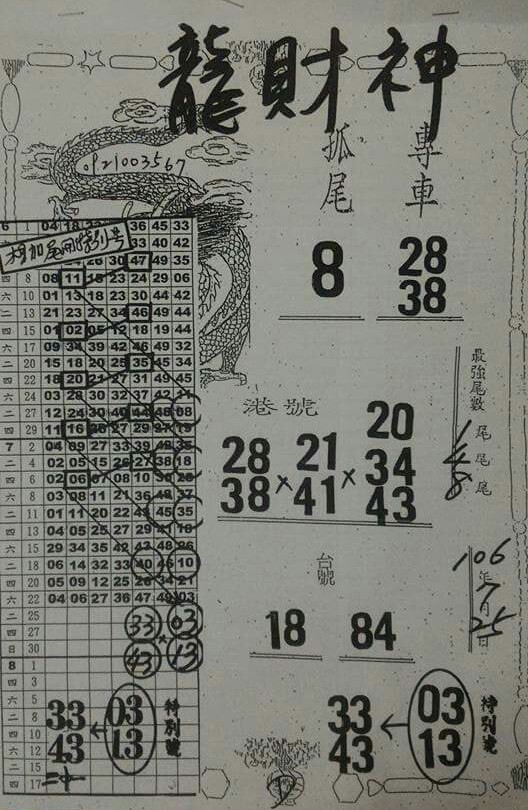 龍財神
0921003567
孤尾
專車
8
28
38
相加尾開特別号
6 1 04 18 36 45 33
33 40 42
30 47 49 35
四 8 08 11 18 23 24 29 06
六 10 01 13 18 23 30 44 42
二 13 21 23 27 34 46 49 44
四 15 01 02 05 12 18 19 44
六 17 09 34 39 42 46 49 32
二 20 15 18 20 25 45 34
四 22 18 20 21 27 31 49 45
六 24 03 28 30 32 37
二 27 12 24 30 40 44 48 08
四 29 11 16 27 29
7 2 04 09 27 33 39
二 4 02 05 15 27 38 18
四 6 02 06 07 08 10
六 8 03 08 11 21 36
二 11 01 11 20 22 45 35
四 13 04 05 25 27 29 16
六 15 29 34 35 42 48 26
二 18 06 14 32 33 40 45 10
四 20 05 09 12 25 34 21
六 22 04 06 27 36 47 03
二 25
四 27
日 30
8 1
四 3
六 5
二 8
四 10
六 12
二 15
四 17
33 × 03
43 13
33 ← 03 特別號
43 13
港號
28 × 21 × 20
38 41 34
43
最強尾數
尾
尾
8 尾
台號
18 84
106年
7月
25日
33 ← 03 特別號
43 13